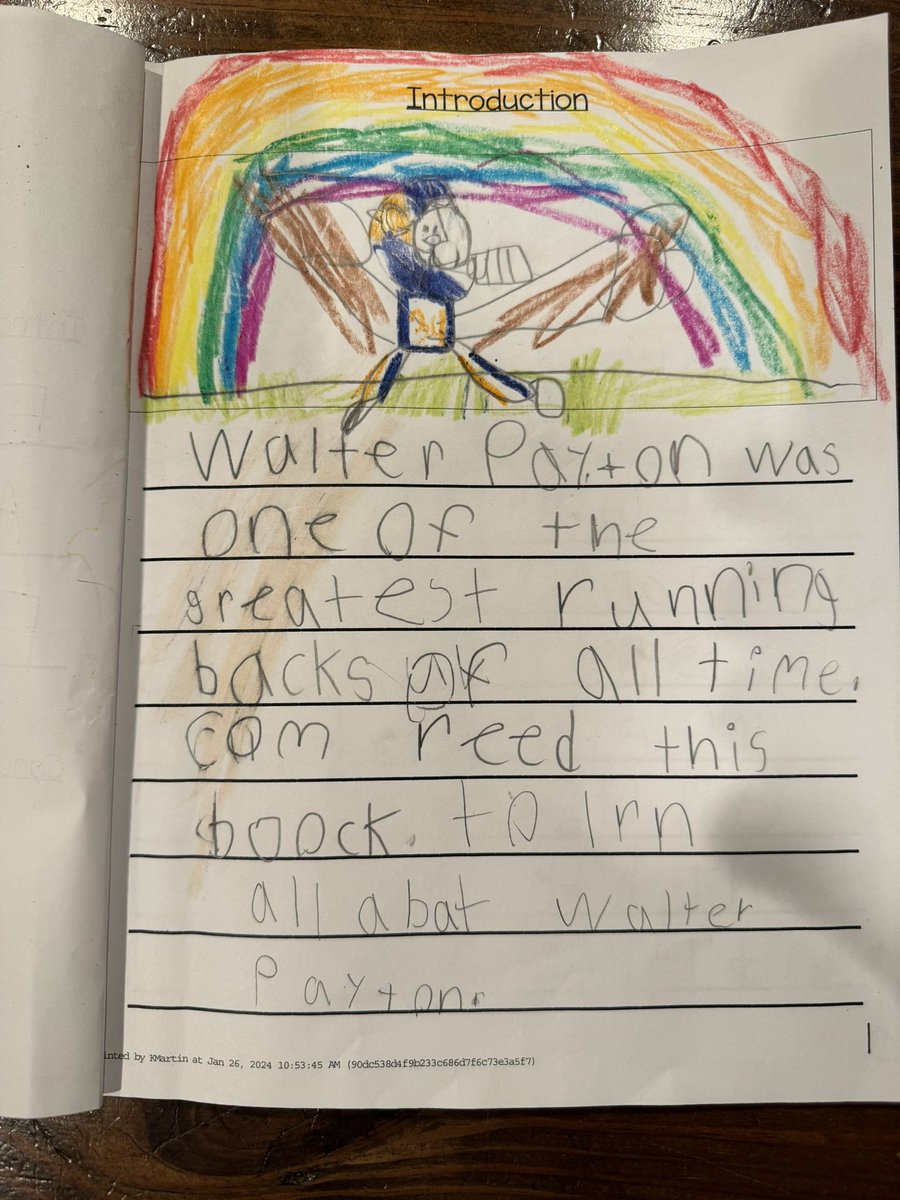 Introduction
Walter Payton was
one of the
greatest running
backs of all time.
com reed this
boock. to lrn
all abat Walter
Payton.
1
inted by KMartin at Jan 26, 2024 10:53:45 AM (90dc538d4f9b233c686d7f6c73e3a5f7)